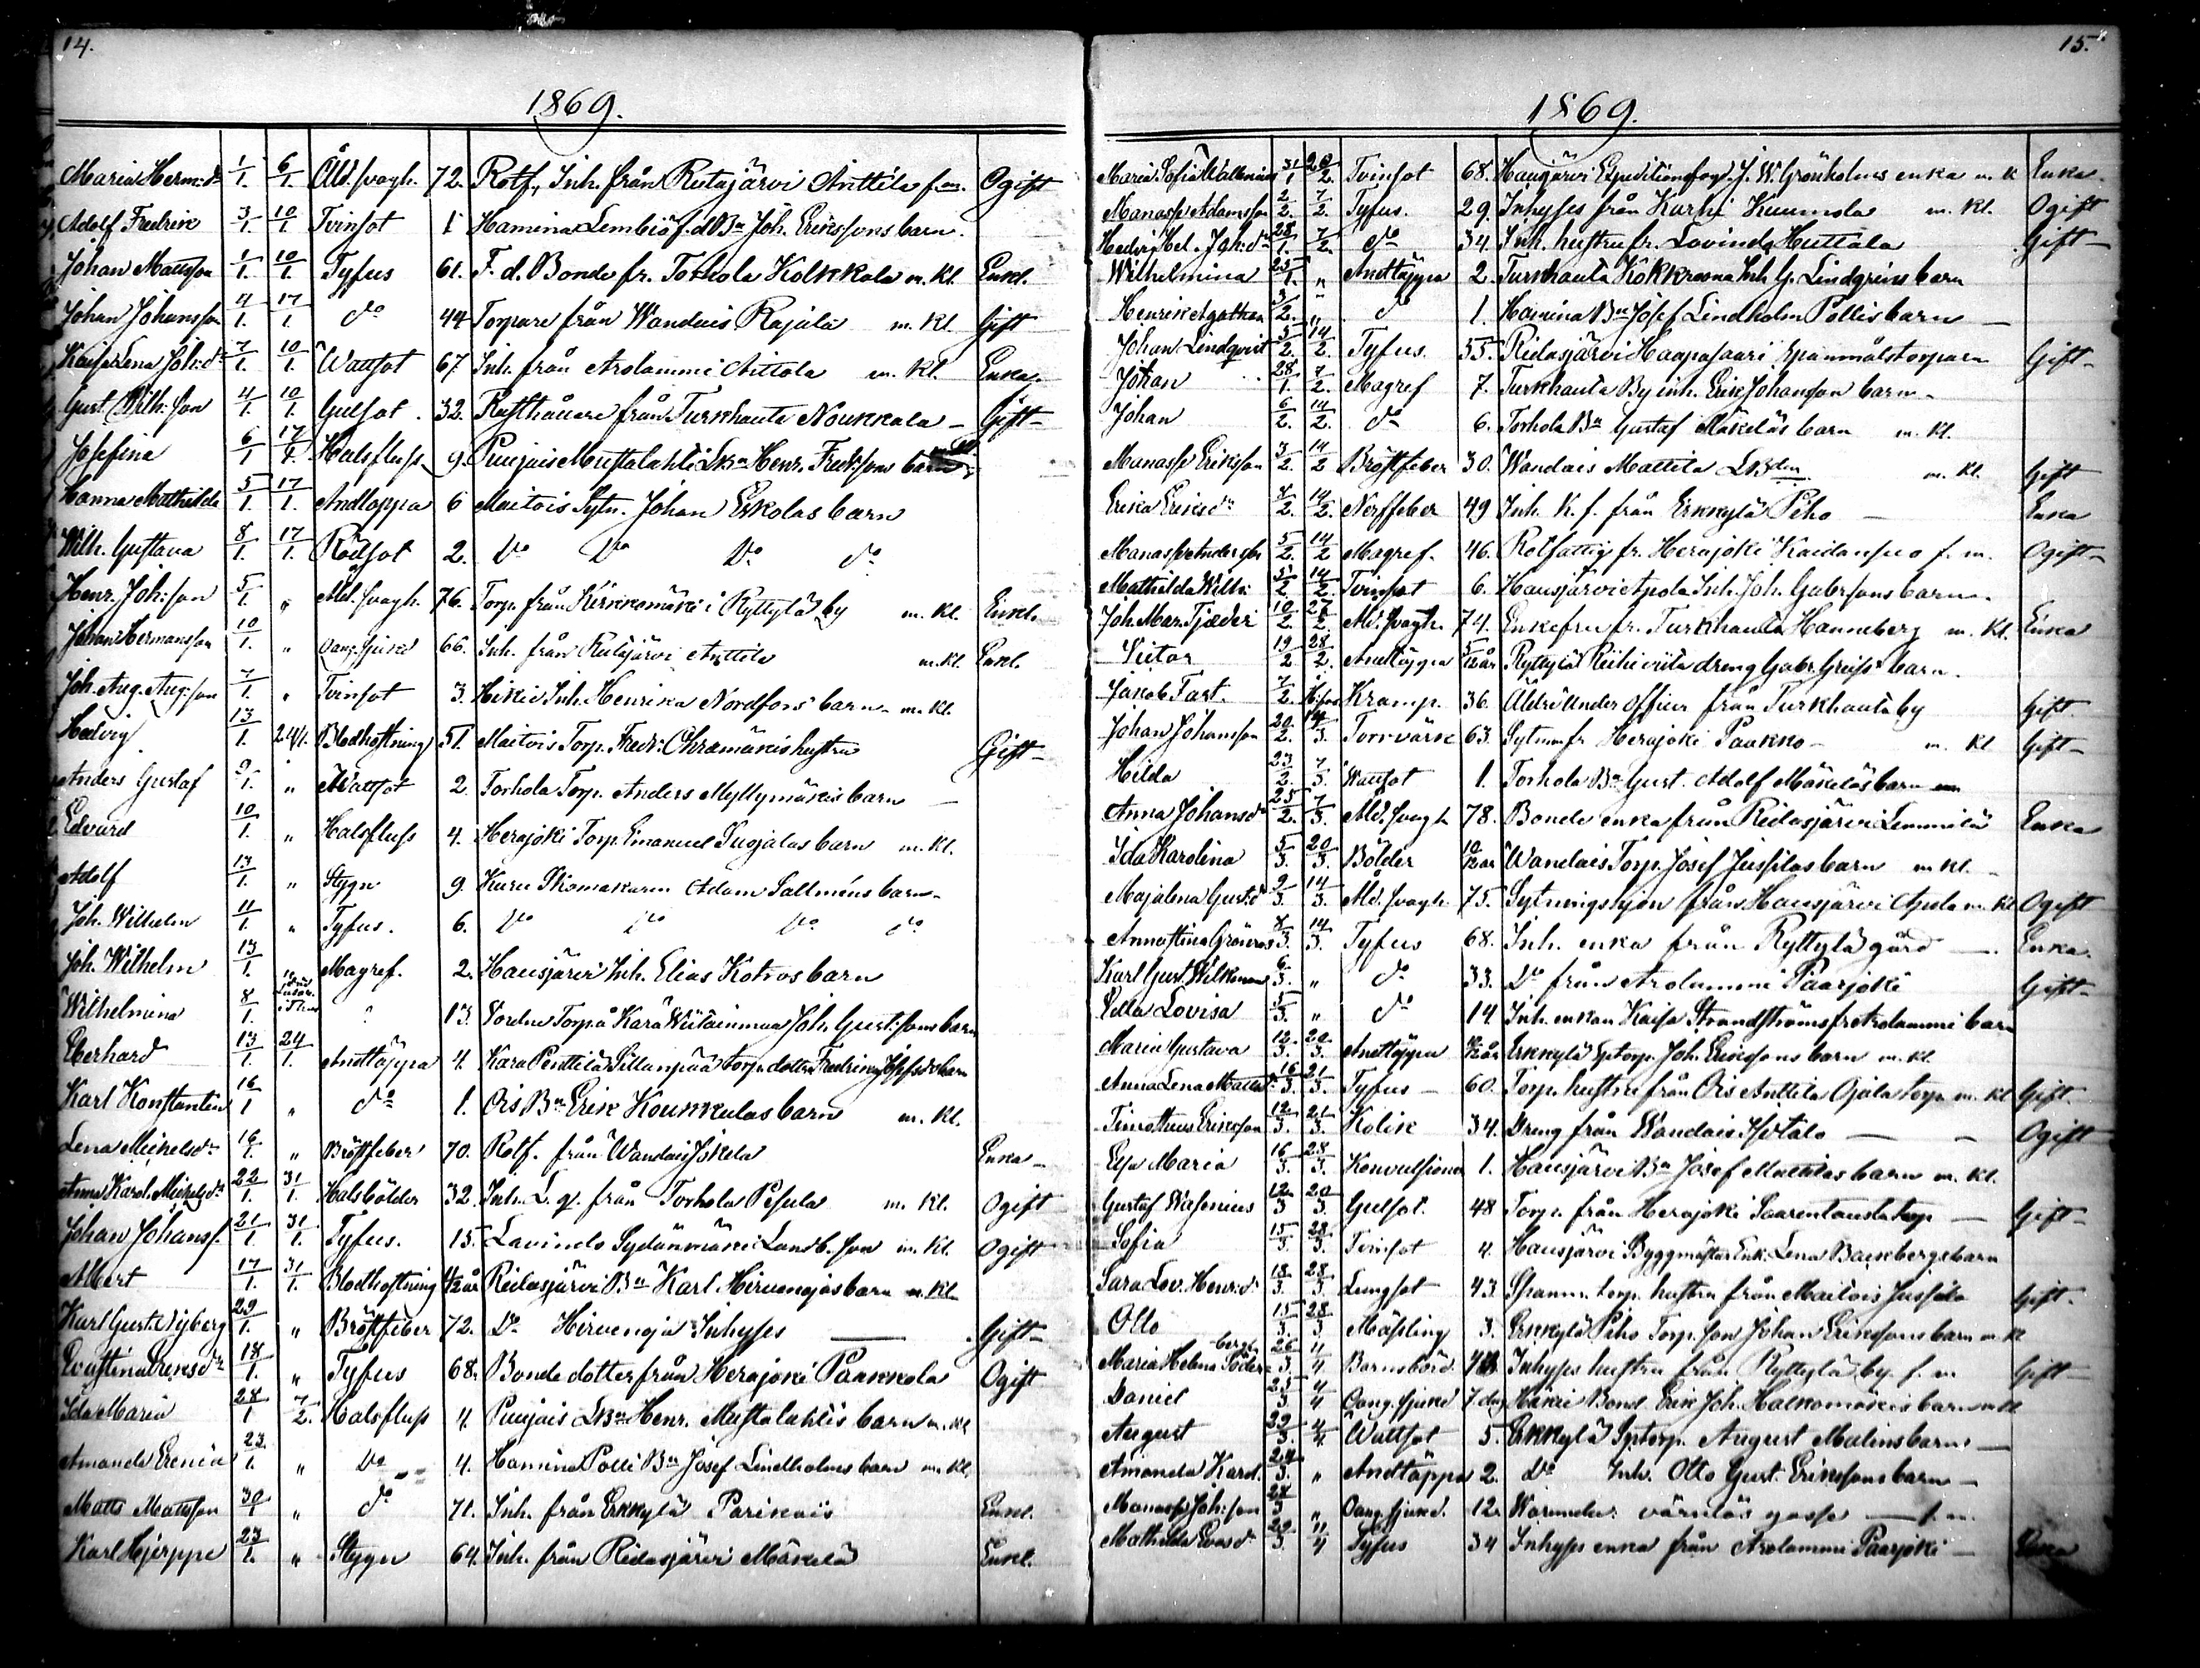 14.
1869.
Maria Herm:dr 1/1. 6/1. Åld. svagh. 72. Rotf. Inh. från Ridasjärvi Anttila f. m. Ogift
Adolf Fredrik 3/1. 10/1. Tvinsot 1 Hamina Lembiö f. d. Bn Joh. Erikssons barn.
Johan Mattsson 1/1. 10/1. Tyfus 61. F. d. Bonde fr. Torhola Kolkkala m. Kl. Enkl.
Johan Johansson 4/1. 17/1. do 44 Torpare från Wandais Rajala m. Kl. Gift
Kaisa Lena Joh:dr 7/1. 10/1. Wattsot 67 Inh. från Arolammi Aittola m. Kl. Enka.
Gust. Wilh:son 4/1. 10/1. Gulsot. 32. Rusthållare från Turkhauta Noukkala Gift
Josefina 6/1 17/1. Halsfluss 9. Puujais Mustalahti LBn Henr. Fredrssons barn
Hanna Mathilda 5/1 17/1. Andtäppa 6 Maitois Sytn. Johan Eskolas barn
Wilh. Gustava 8/1. 17/1. Rödsot 2. Do Do Do do
Henr. Joh:son 5/1. " Åld. svagh. 76. Torp. från Kirkkomäki i Ryttylä by m. Kl. Enkl.
Johan Hermansson 10/1. " Oang. sjukd 66. Inh. från Ridasjärvi Anttila m. Kl. Enkl.
Joh. Aug. Aug:son 7/1. " Tvinsot 3. Hikiä Inh. Henrika Nordfors barn m. Kl.
Hedvig 13/1. 24/1. Blodhostning 51. Maitois Torp. Fredr. Ohramäkis hustru Gift
Anders Gustaf 9/1. " Wattsot 2. Torhola Torp. Anders Myllymäkis barn
Edvard 10/1. " Halsfluss 4. Herajoki Torp. Emanuel Suojalas barn m. Kl.
Adolf 13/1. " Stygn 9 Kuru Skomakaren Adam Sallméns barn
Joh. Wilhelm 11/1. " Tyfus. 6. Do Do Do do
Joh. Wilhelm 13/1. Magref. 2. Hausjärvi Inh. Elias Kotros barn
Wilhelmina 8/1. 13. Torp Kara Wiitainmaa Joh. Gust:sons barn
Eberhard 13/1. 24/1. Andtäppa 4. Kara Penttilä Sillanpää torp. dotter Fredrika barn
Karl Konstantin 16/1 " do 1. Ois Bn Erik Koukkulas barn m. Kl.
Lena Mickelsdr 16/1. " Bröstfeber 70. Rotf. från Wandais Jokela Enka
Anna Karol. Mickelsdr 22/1. 31/1. Halsbölder 32. Inh. L. q. från Torhola Pesula m. Kl. Ogift
Johan Johanss. 21/1. 31/1. Tyfus. 15. Lavinto Sydänmäki Landb. son m. Kl. Ogift
Albert 17/1. 31/1. Blodhostning ½ år Ridasjärvi Bn Karl Hirvenojas barn m. Kl
Karl Gust. Nyberg 29/1. " Bröstfeber 72. Do Hirvenoja Inhyses Gift
Evastina Eriksdr 18/1. " Tyfus 68. Bonde dotter från Herajoki Paakkola Ogift
Ida Maria 28/1 7/2. Halsfluss 4. Puujais LBn Henr. Mustalahtis barn m. Kl
Amanda Erenia 23/1. " Do 4. Hamina Polli Bn Josef Lindholms barn m. Kl.
Matts Mattsson 30/1 " do 71. Inh. från Erkkylä Parikais Enkl.
Karl Hjerppe 23/1. " Stygn 64. Inh. från Ridasjärvi Mäkelä Enkl.
15.
1869.
Maria Sofia Wallenius 31/1 2. Tvinsot 68. Hausjärvi Expeditionsfog. J. W. Grönholms enka m. K Enka.
Manasse Adamsson 2/2. 7/2. Tyfus. 29. Inhyses från Karhi Kuumola m. Kl. Ogift
Hedvig Hel. Joh:dr 28/1. 7/2. do 34 Inh. hustru fr. Lovinda Huttala Gift
Wilhelmina 25/1. " Andtäppa 2. Turkhauta Inh. G. Lindgrens barn
Henrik Agathon 3/2. " do 1. Hamina Bn Josef Lindholm Pollis barn
Johan Lindqvist 5/2. 14/2. Tyfus. 55. Ridasjärvi Haapasaari Spanmålstorparn Gift
Johan 28/1. 7/2. Magref 7. Turkhauta By inh. Erik Johansson barn
Johan 6/2. 14/2. do 6. Torhola Bn Gustaf Mäkeläs barn m. Kl.
Manasse Eriksson 3/2. 14/2 Bröstfeber 30. Wandais Mattila LBden m. Kl. Gift
Erika Eriksdr 7/2. 14/2. Nerffeber 49 Inh. K. f. från Erkkylä Piho Enka
Manasse Andersson 5/2. 14/2 Magref. 46. Rotfattig fr. Herajoki Kaidansuo f. m. Ogift
Mathilda Wilh. 5/2 14/2. Tvinsot 6. Hausjärvi Apola Inh. Joh. Gabrssons barn
Joh. Mar. Tjäder 10/2. 27/2. Åld. svagh. 74. Enkefru fr. Turkhauta Hanneberg m. Kl. Enka
Victor 19/2 28/2. Andtäppa 5/12 år Ryttylä Riihiviita dreng Gabr. barn
Jakob Fast. 7/2. Kramp. 36. Äldre Under officer från Turkhauta by Gift.
Johan Johansson 20/2. 14/3. Torrvärk 63. Sytn. fr Herajoki Paakko m. Kl Gift
Hilda 23/2. 7/3. Wattsot 1. Torhola Bn Gust. Adolf Mäkeläs barn
Anna Johansdr 25/2. 7/3. Åld. svagh 78. Bonde enka från Ridasjärvi Lemmilä Enka
Ida Karolina 5/3. 20/3. Bölder 10/12 år Wandais Torp. Josef Jussilas barn m. Kl.
Majalena Gust:dr 9/3. 14/3. Åld. svagh. 75. Sytningshjon från Hausjärvi Apola m. Kl Ogift
Annastina Grönros 8/3. 14/3. Tyfus 68. Inh. enka från Ryttylä gård Enka.
Karl Gust. Wilkman 6/3. " do 33. Do från Arolammi Paarjoki Gift
Ulla Lovisa 5/3. " do 14 Inh. enkan Kaisa Strandströms fr Arolammi barn
Maria Gustava 12/3. 20/3. Andtäppa Erkkylä Sptorp. Joh. Erikssons barn m. Kl.
Anna Lena Mattsdr 16/3. 21/3. Tyfus 60. Torp. hustru från Ois Anttila Ojala torp m. Kl Gift
Timotheus Eriksson 12/3. 21/3. Kolik 34. Dreng från Wandais Isotalo Ogift
Elsa Maria 16/3. 28/3. Konvulsioner 1. Hausjärvi Bn Josef Mattilas barn m. Kl.
Gustaf Wasenius 12/3 20/3. Gulsot. 48 Torp. från Herajoki Saarentausta torp Gift
Sofia 15/3. 28/3. Tvinsot 4. Hausjärvi Byggmästar Enk. Lena Backbergs barn
Sara Lov. Henr:dr 18/3. 28/3. Lungsot 43. Spanm. torp. hustru från Maitois Jussila Gift.
Otto 15/3. 28/3 Mässling 3. Erkkylä Piho Torp. son Johan Erikssons barn m. K
Maria Helena Söderberg 26/3. 4/4. Barnsbörd Inhyses hustru från Ryttylä by f. m Gift
Daniel 25/3 4/4 Oang. sjukd 7 dag. Häkki Bond. Erik Joh. Halkomäkis barn m Kl
August 29/3. 4/4. Wattsot 5. Erkkylä Sptorp. August Malins barn
Amanda Karol. 24/3. " Andtäppa 2. do Inh. Otto Gust. Erikssons barn
Manasse Joh:son 28/3 " Oang. sjukd. 12. värnlös gosse f. m.
Mathilda Evasdr 29/3. 11/4 Tyfus 34 Inhyses enka från Arolammi Paarjoki Enka